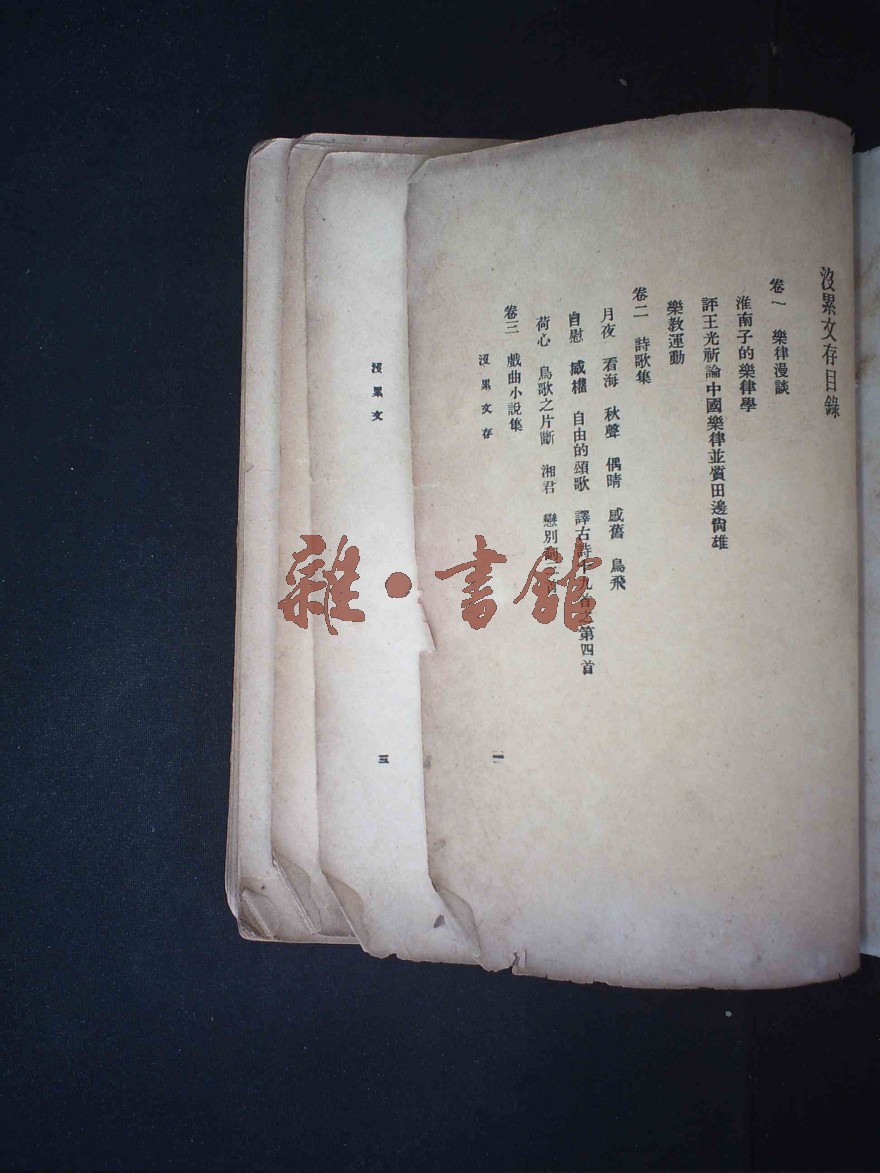 沒累文存目錄
卷一 樂律漫談
淮南子的樂律學
評王光祈論中國樂律並質田邊尙雄
樂教運動
卷二 詩歌集
月夜 看海 秋聲 偶晴 感舊 鳥飛
自慰 威權 自由的頌歌 譯古詩十九首之第四首
荷心 鳥歌之片斷 湘君 戀別
卷三 戲曲小說集
沒累文存
一
沒累文
三
雜·書館